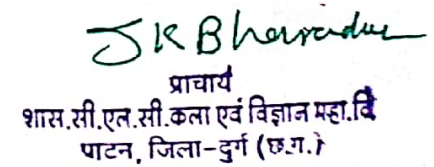 JKBharadwaj
प्राचार्य
शास.सी.एल.सी.कला एवं विज्ञान महा.वि
पाटन, जिला-दुर्ग (छ.ग.)